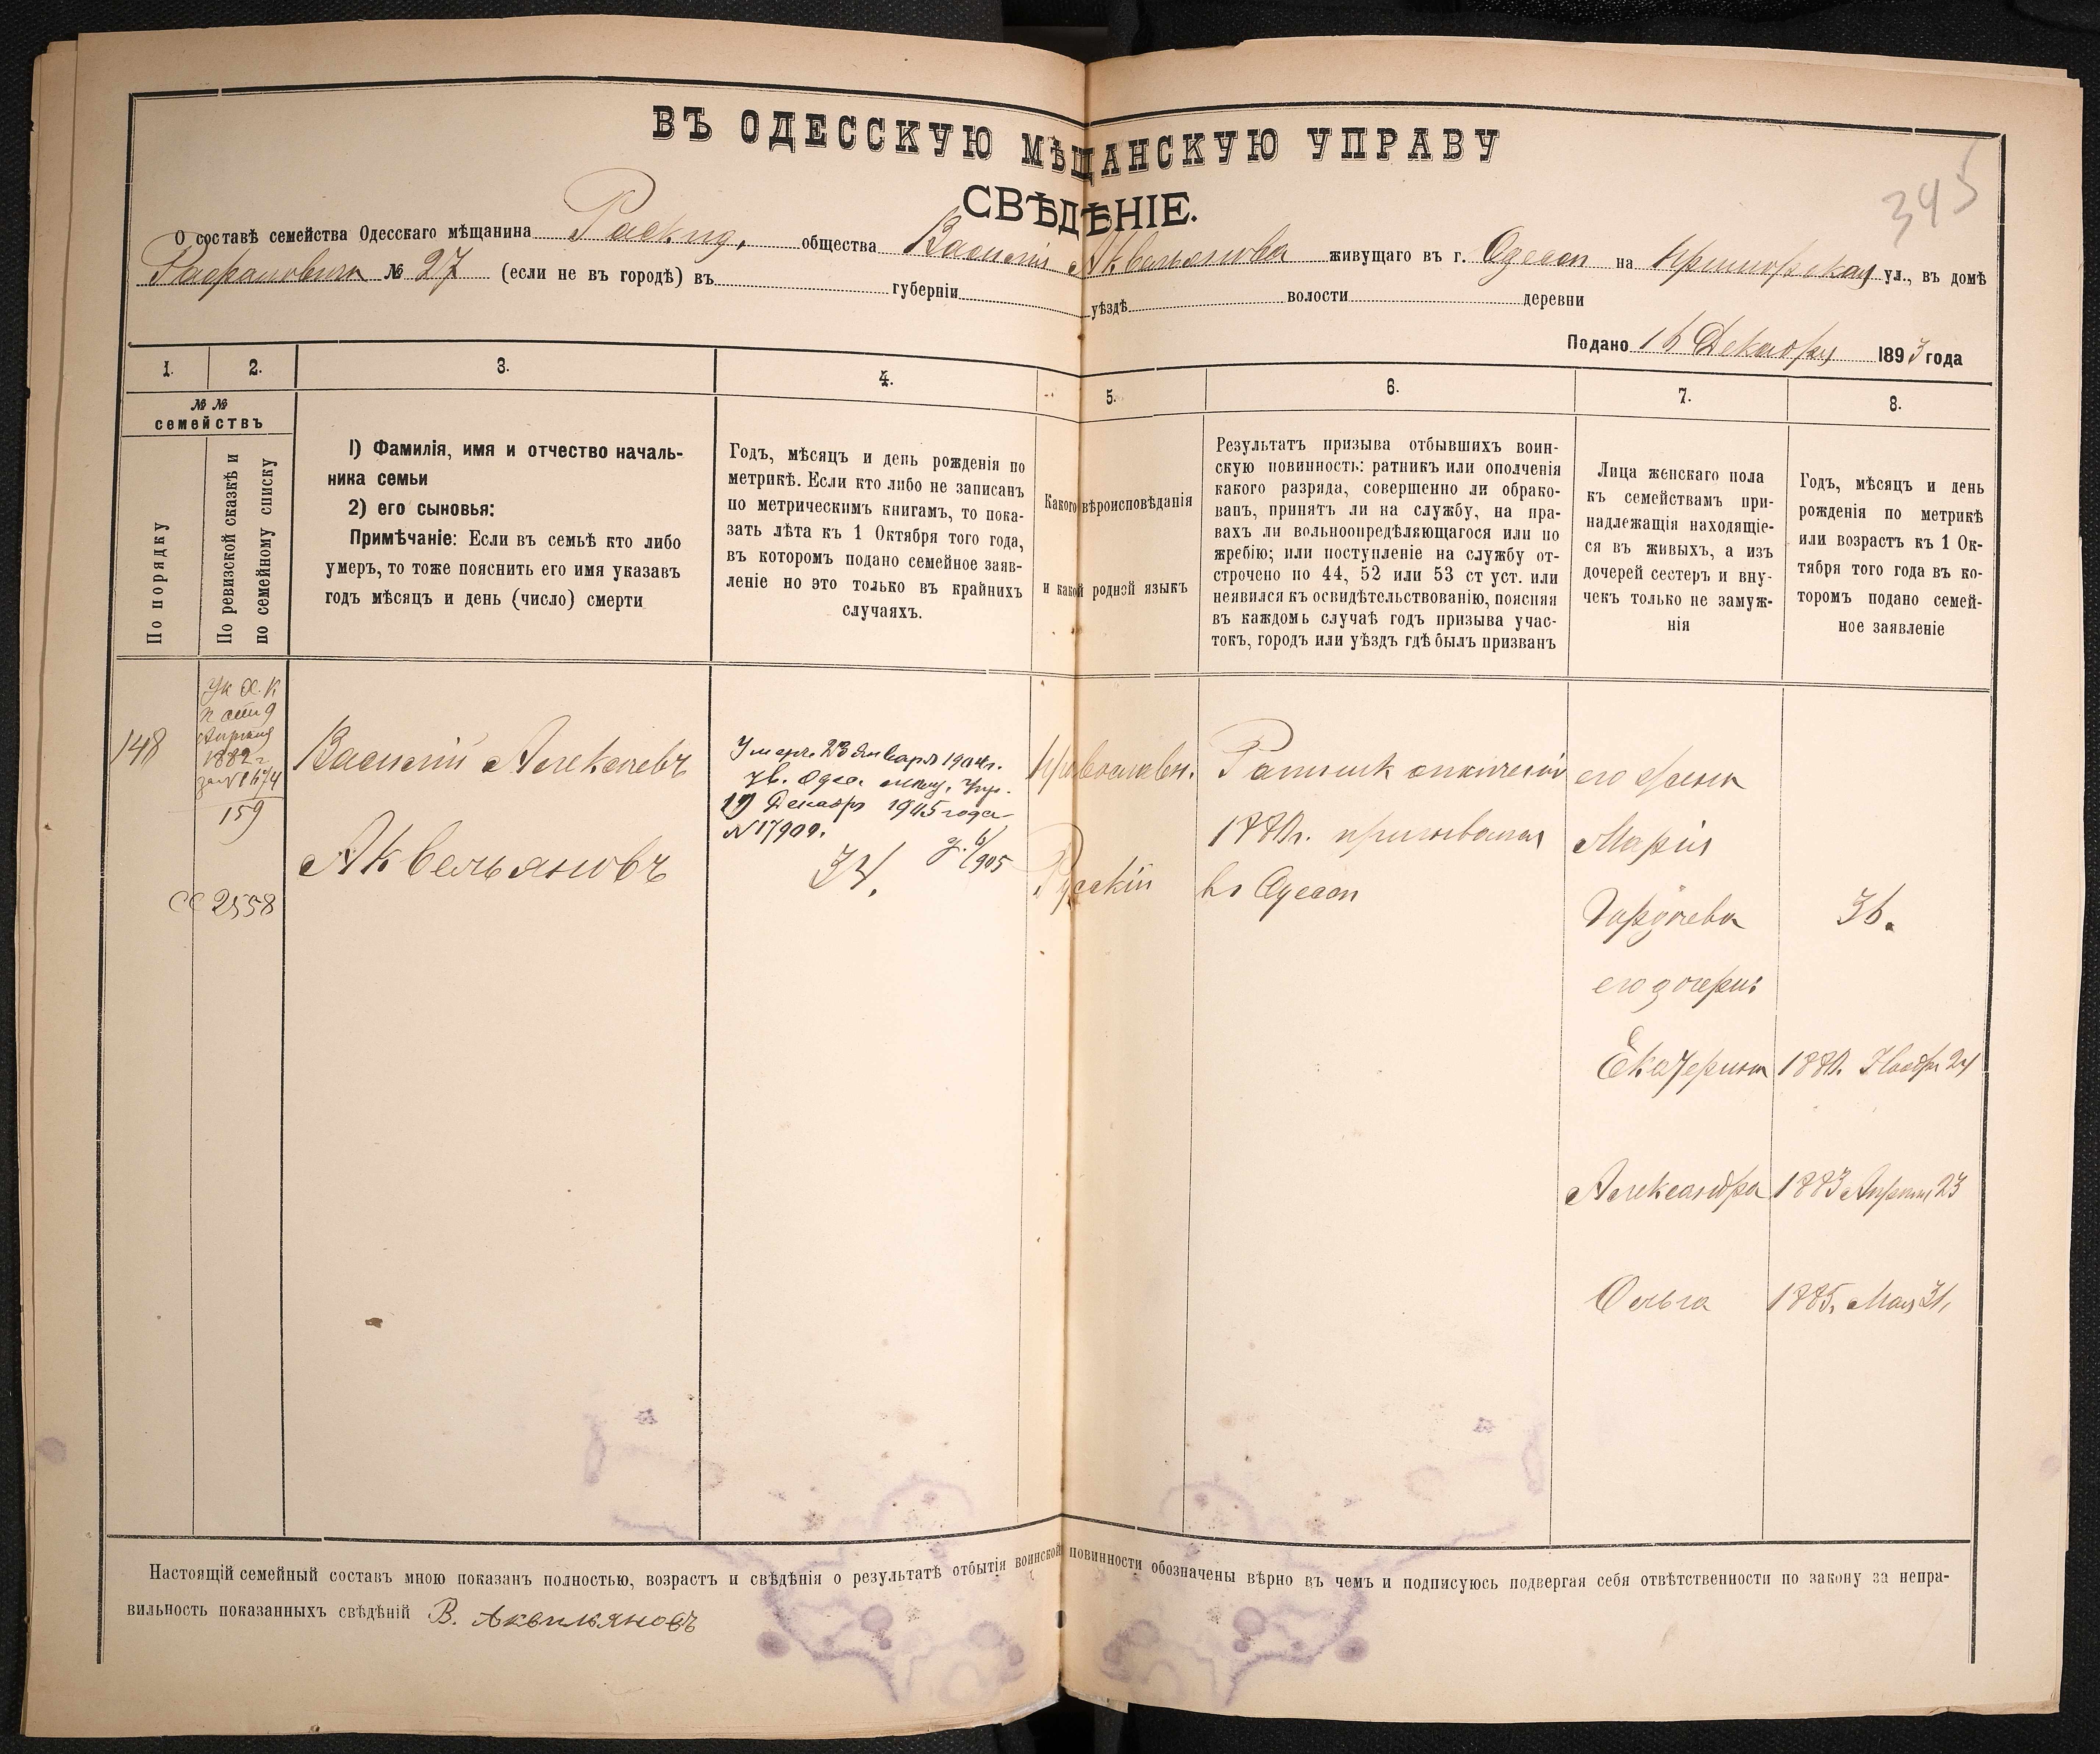 ВЪ ОДЕССКУЮ МѢЩАНСКУЮ УПРАВУ
СВѢДѢНІЕ.
345
О составѣ семейства Одесскаго мѣщанина общества Василія Аквельянова живущаго въ г. Одессѣ на Приморской ул., въ домѣ
№ 27 (если не въ городѣ) въ губерніи уѣздѣ волости деревни
Подано 16 Декабря 1893 года
1. 2. 3. 4. 5. 6. 7. 8.
№ № семействъ
По порядку
По ревизской сказкѣ и по семейному списку
1) Фамилія, имя и отчество началь-
ника семьи
2) его сыновья:
Примѣчаніе: Если въ семьѣ кто либо
умеръ, то тоже пояснить его имя указавъ
годъ мѣсяцъ и день (число) смерти
Годъ, мѣсяцъ и день рожденія по
метрикѣ. Если кто либо не записанъ
по метрическимъ книгамъ, то пока-
зать лѣта къ 1 Октября того года,
въ которомъ подано семейное заяв-
леніе но это только въ крайнихъ
случаяхъ.
Какого вѣроисповѣданія
и какой родной языкъ
Результатъ призыва отбывшихъ воин-
скую повинность: ратникъ или ополченія
какого разряда, совершенно ли обрако-
ванъ, принятъ ли на службу, на пра-
вахъ ли вольноопредѣляющагося или по
жребію; или поступленіе на службу от-
строчено по 44, 52 или 53 ст уст. или
неявился къ освидѣтельствованію, поясняя
въ каждомъ случаѣ годъ призыва учас-
токъ, городъ или уѣздъ гдѣ былъ призванъ
Лица женскаго пола
къ семействамъ при-
надлежащія находящіе-
ся въ живыхъ, а изъ
дочерей сестеръ и вну-
чекъ только не замуж-
нія
Годъ, мѣсяцъ и день
рожденія по метрикѣ
или возрастъ къ 1 Ок-
тября того года въ ко-
торомъ подано семей-
ное заявленіе
148
Ук Х. К
1882 г
за № 1674
159
СС 2558
Василій Алексѣевъ
Аквельяновъ
Умеръ 23 Января 1904 г.
ув. Одес. мѣщ. Упр.
19 Декабр 1905 года
№ 17909.
34.
Православн.
Русскій
Ратник
призывался
въ Одессѣ
его жена
Марія
36.
его дочери:
Екатерина Ноябр 24
Александра 1883 Апрѣля 23
Ольга 1885. Мая 31,
Настоящій семейный составъ мною показанъ полностью, возрастъ и свѣдѣнія о результатѣ отбытія воинской повинности обозначены вѣрно въ чемъ и подписуюсь подвергая себя отвѣтственности по закону за непра-
вильность показанныхъ свѣдѣній В. Аквильяновъ